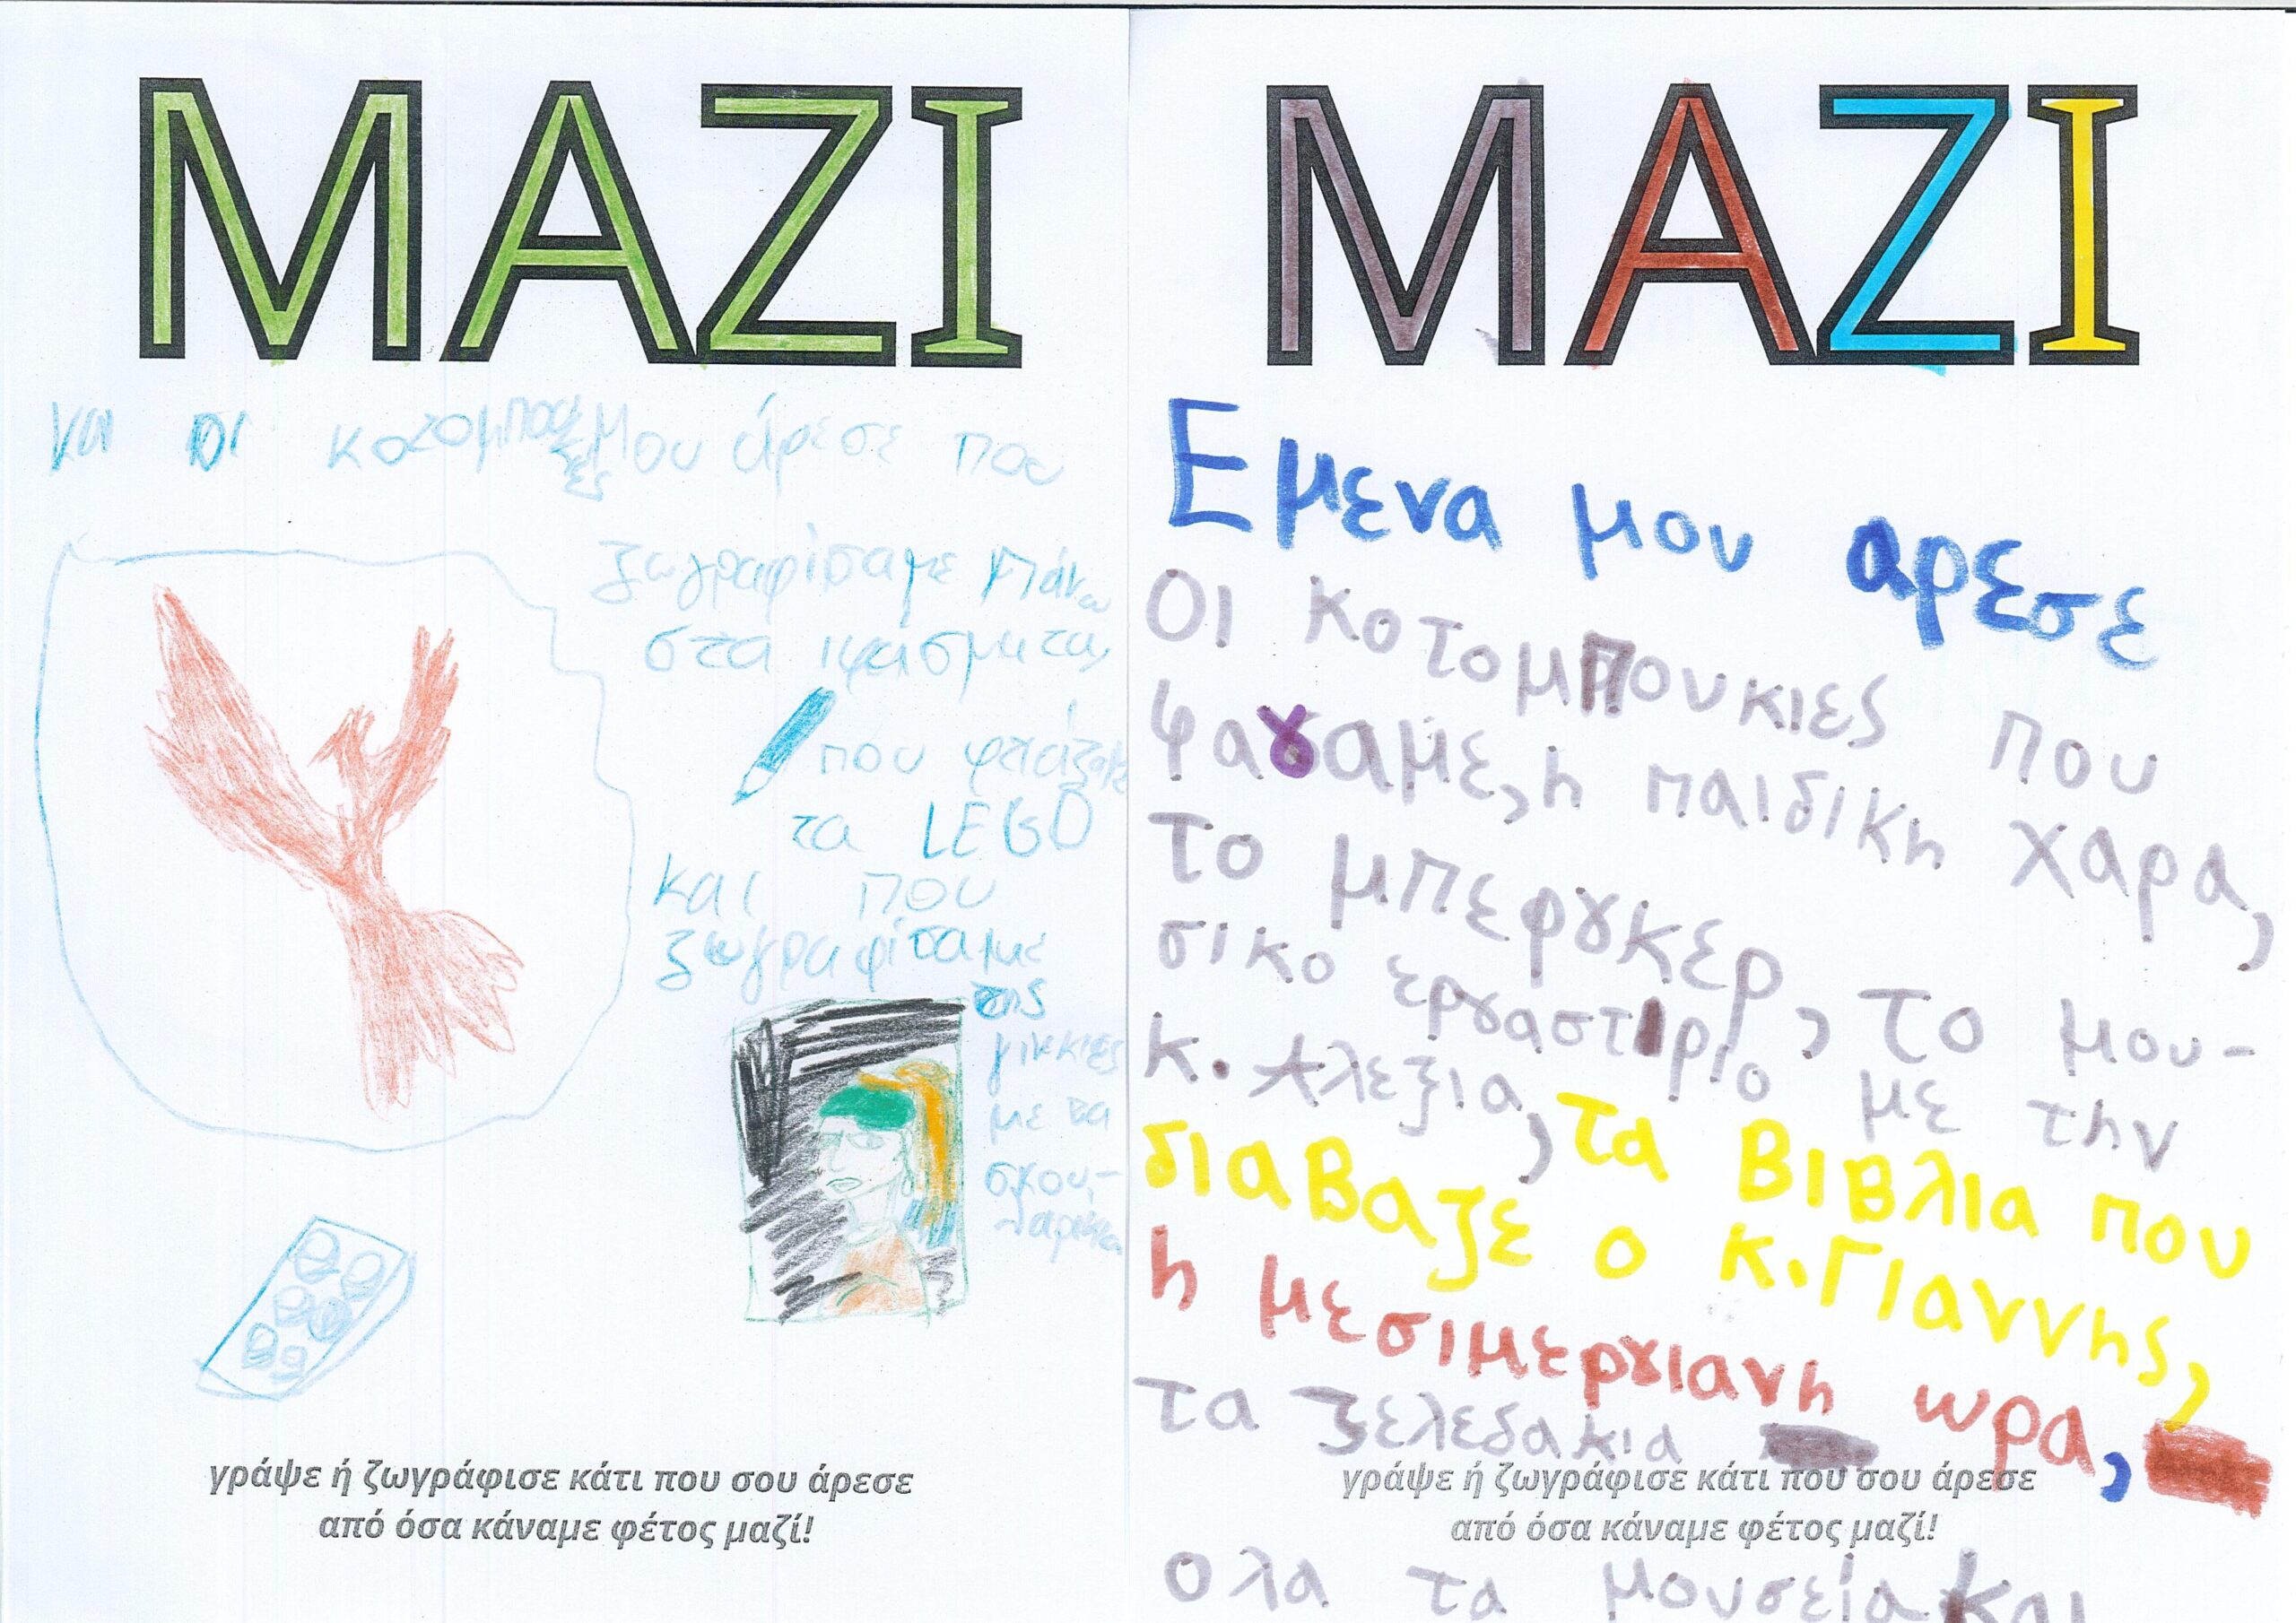 ΜΑΖΙ
και οι κοτομπου
κιες μου άρεσε που
ζωγραφίσαμε πάνω
στα υφασματα,
που φτιάξαμε
τα LEGO
και που
ζωγραφίσαμε
της
με τα
σκου-
λαρικια
γράψε ή ζωγράφισε κάτι που σου άρεσε
από όσα κάναμε φέτος μαζί!
ΜΑΖΙ
Εμενα μου αρεσε
Οι κοτομπουκιες που
φαγαμε, η παιδικη χαρα,
το μπεργκερ, το μου-
σικο εργαστιριο με την
κ. Αλεξια, τα Βιβλια που
διαβαζε ο κ. Γιαννης,
η μεσιμεργιανη ωρα,
τα ζελεδακια
γράψε ή ζωγράφισε κάτι που σου άρεσε
από όσα κάναμε φέτος μαζί!
ολα τα μουσεία και